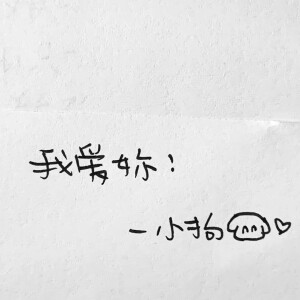 我爱妳！
一小狗